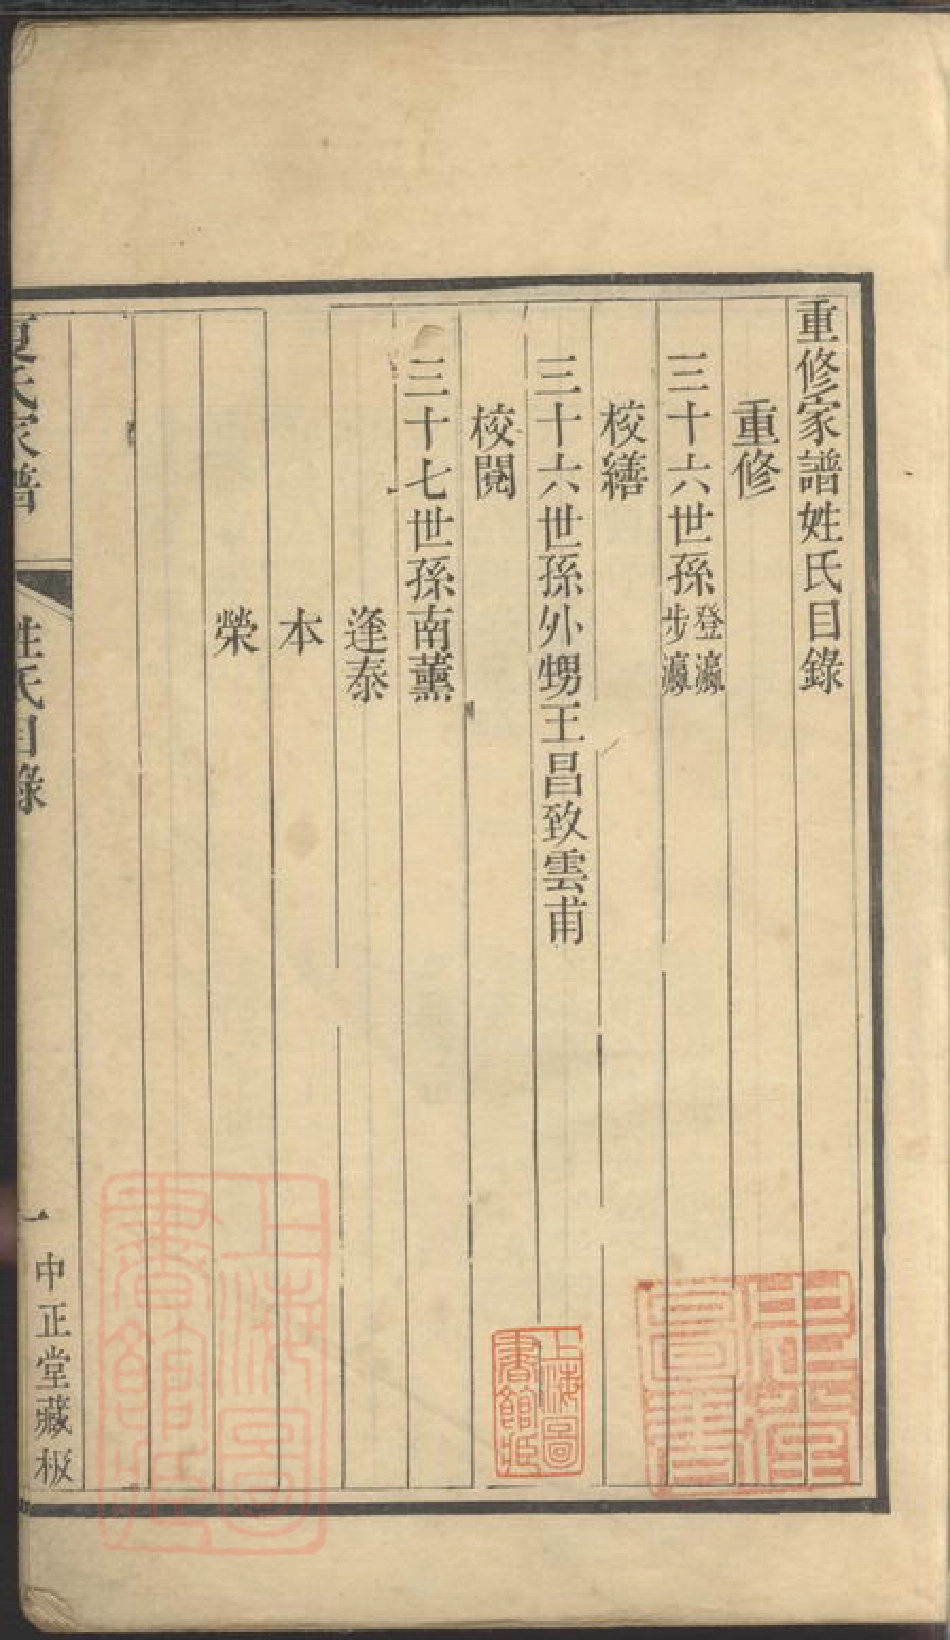 重修家譜姓氏目錄
重修
三十六世孫登瀛步瀛
校繕
三十六世孫外甥王昌致雲甫
校閱
三十七世孫南薰
逢泰
本
榮
夏氏家譜
姓氏目錄
一
中正堂藏板
上海圖書館藏
上海圖書館藏